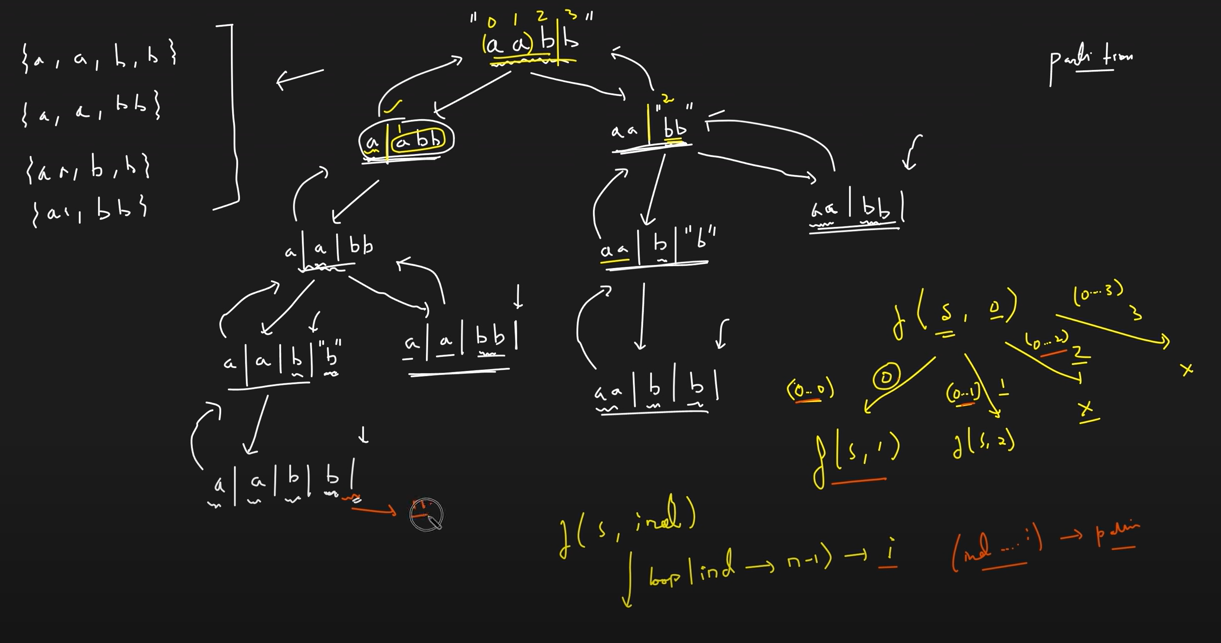 " 0 1 2 3 "
(a a) b | b
{a, a, b, b}
{a, a, bb}
{aa, b, b}
{aa, bb}
partition
a | abb
1
aa | "bb"
2
a | a | bb
aa | b | "b"
aa | bb |
a | a | b | "b"
a | a | bb |
aa | b | b |
a | a | b | b |
f(s, 0)
(0...3)
3
(0...2)
2
x
x
(0...0)
0
(0...1)
1
f(s, 1)
f(s, 2)
f(s, ind)
loop(ind → n-1) → i
(ind ... i) → palin